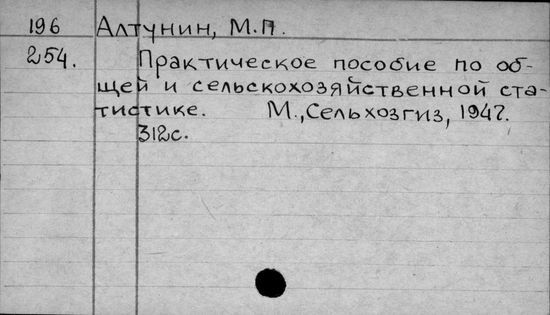 196 Алтунин, М.П.
254. Практическое пособие по об-
щей и сельскохозяйственной ста-
тистике. М., Сельхозгиз, 1947.
312с.